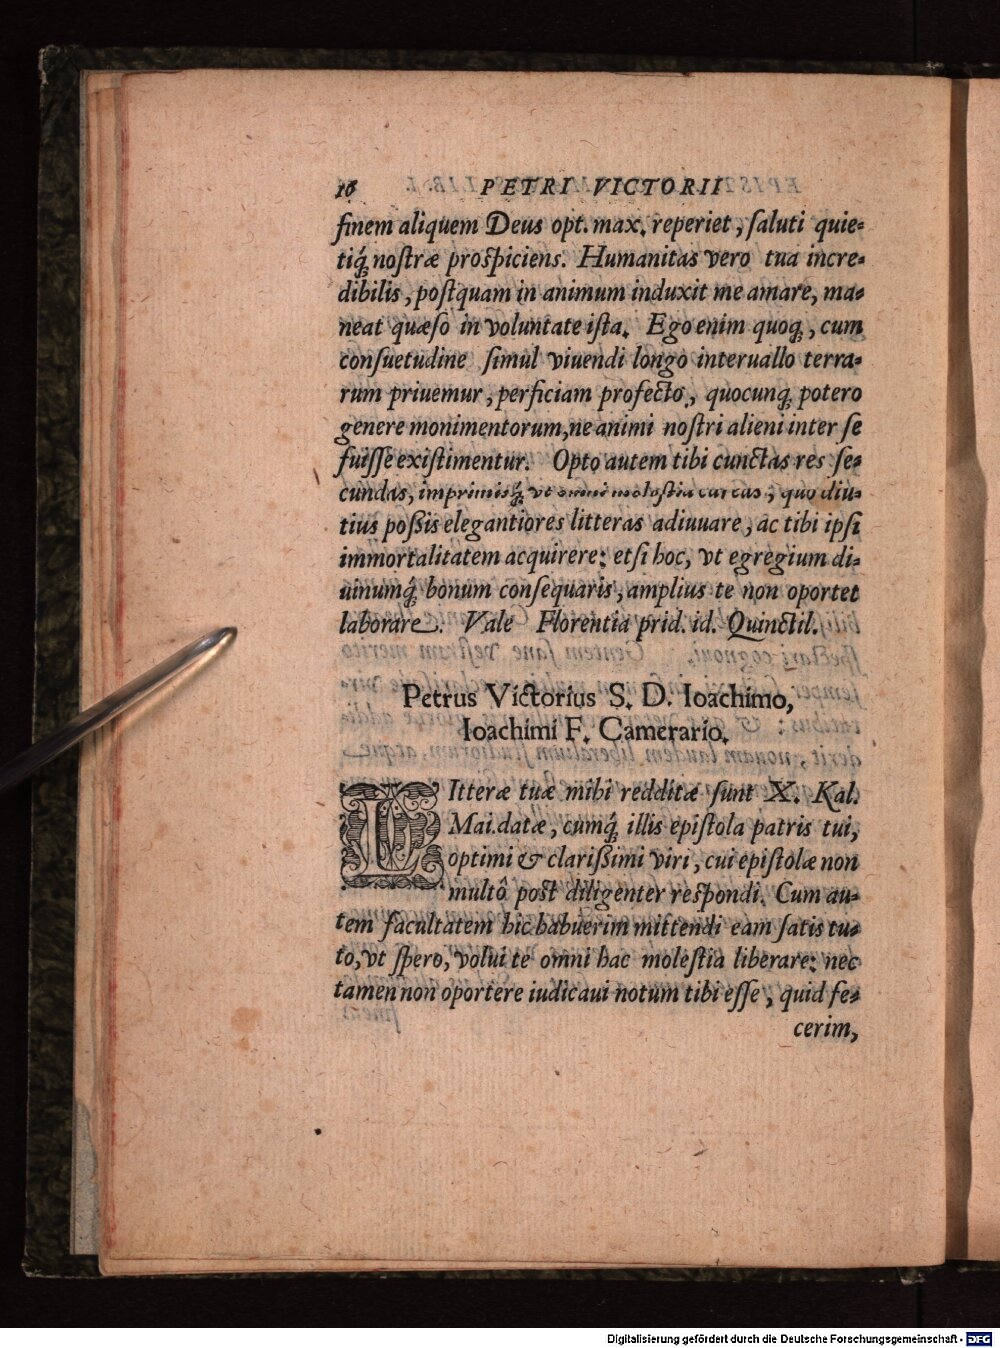 16 PETRI VICTORII
finem aliquem Deus opt. max. reperiet, saluti quie-
tiq́; nostræ prospiciens. Humanitas vero tua incre-
dibilis, postquam in animum induxit me amare, ma-
neat quæso in voluntate ista. Ego enim quoq;, cum
consuetudine simul viuendi longo interuallo terra-
rum priuemur, perficiam profecto, quocunq; potero
genere monimentorum, ne animi nostri alieni inter se
fuisse existimentur. Opto autem tibi cunctas res se-
cundas, imprimisq́; vt omni molestia careas, quo diu-
tius possis elegantiores litteras adiuuare, ac tibi ipsi
immortalitatem acquirere: etsi hoc, vt egregium di-
uinumq́; bonum consequaris, amplius te non oportet
laborare. Vale Florentia prid. id. Quinctil.
Petrus Victorius S. D. Ioachimo,
Ioachimi F. Camerario.
LItteræ tuæ mihi redditæ sunt X. Kal.
Mai. datæ, cumq́; illis epistola patris tui,
optimi & clarissimi viri, cui epistolæ non
multô post diligenter respondi. Cum au-
tem facultatem hic habuerim mittendi eam satis tu-
to, vt spero, volui te omni hac molestia liberare: nec
tamen non oportere iudicaui notum tibi esse, quid fe-
cerim,
Digitalisierung gefördert durch die Deutsche Forschungsgemeinschaft - DFG